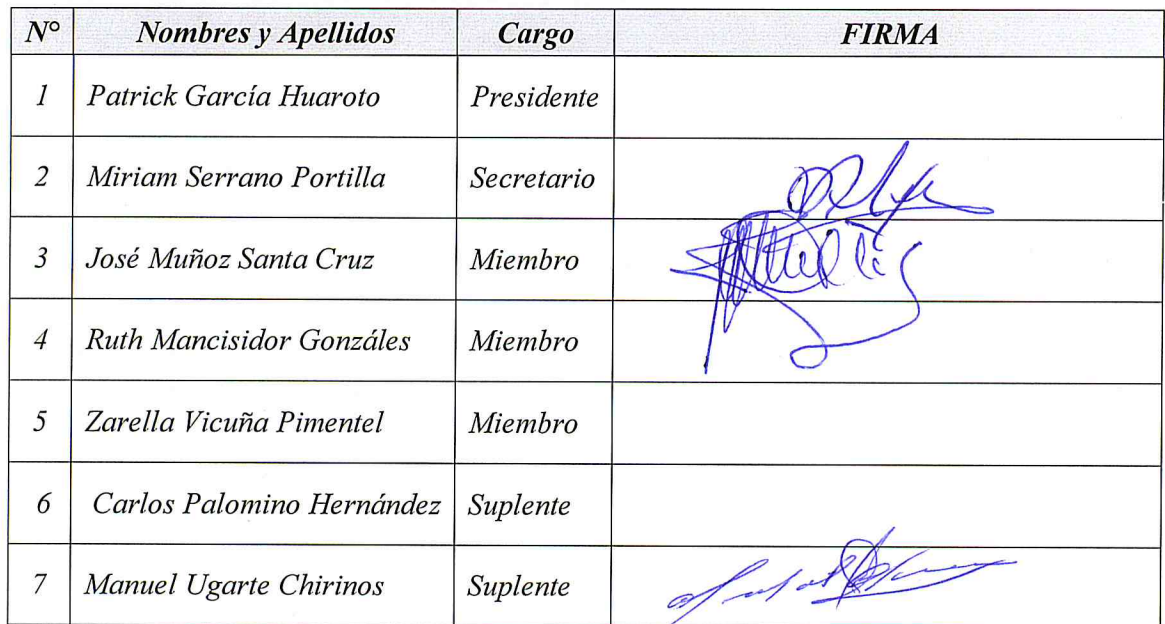 N° Nombres y Apellidos Cargo FIRMA
1 Patrick García Huaroto Presidente
2 Miriam Serrano Portilla Secretario
3 José Muñoz Santa Cruz Miembro
4 Ruth Mancisidor Gonzáles Miembro
5 Zarella Vicuña Pimentel Miembro
6 Carlos Palomino Hernández Suplente
7 Manuel Ugarte Chirinos Suplente